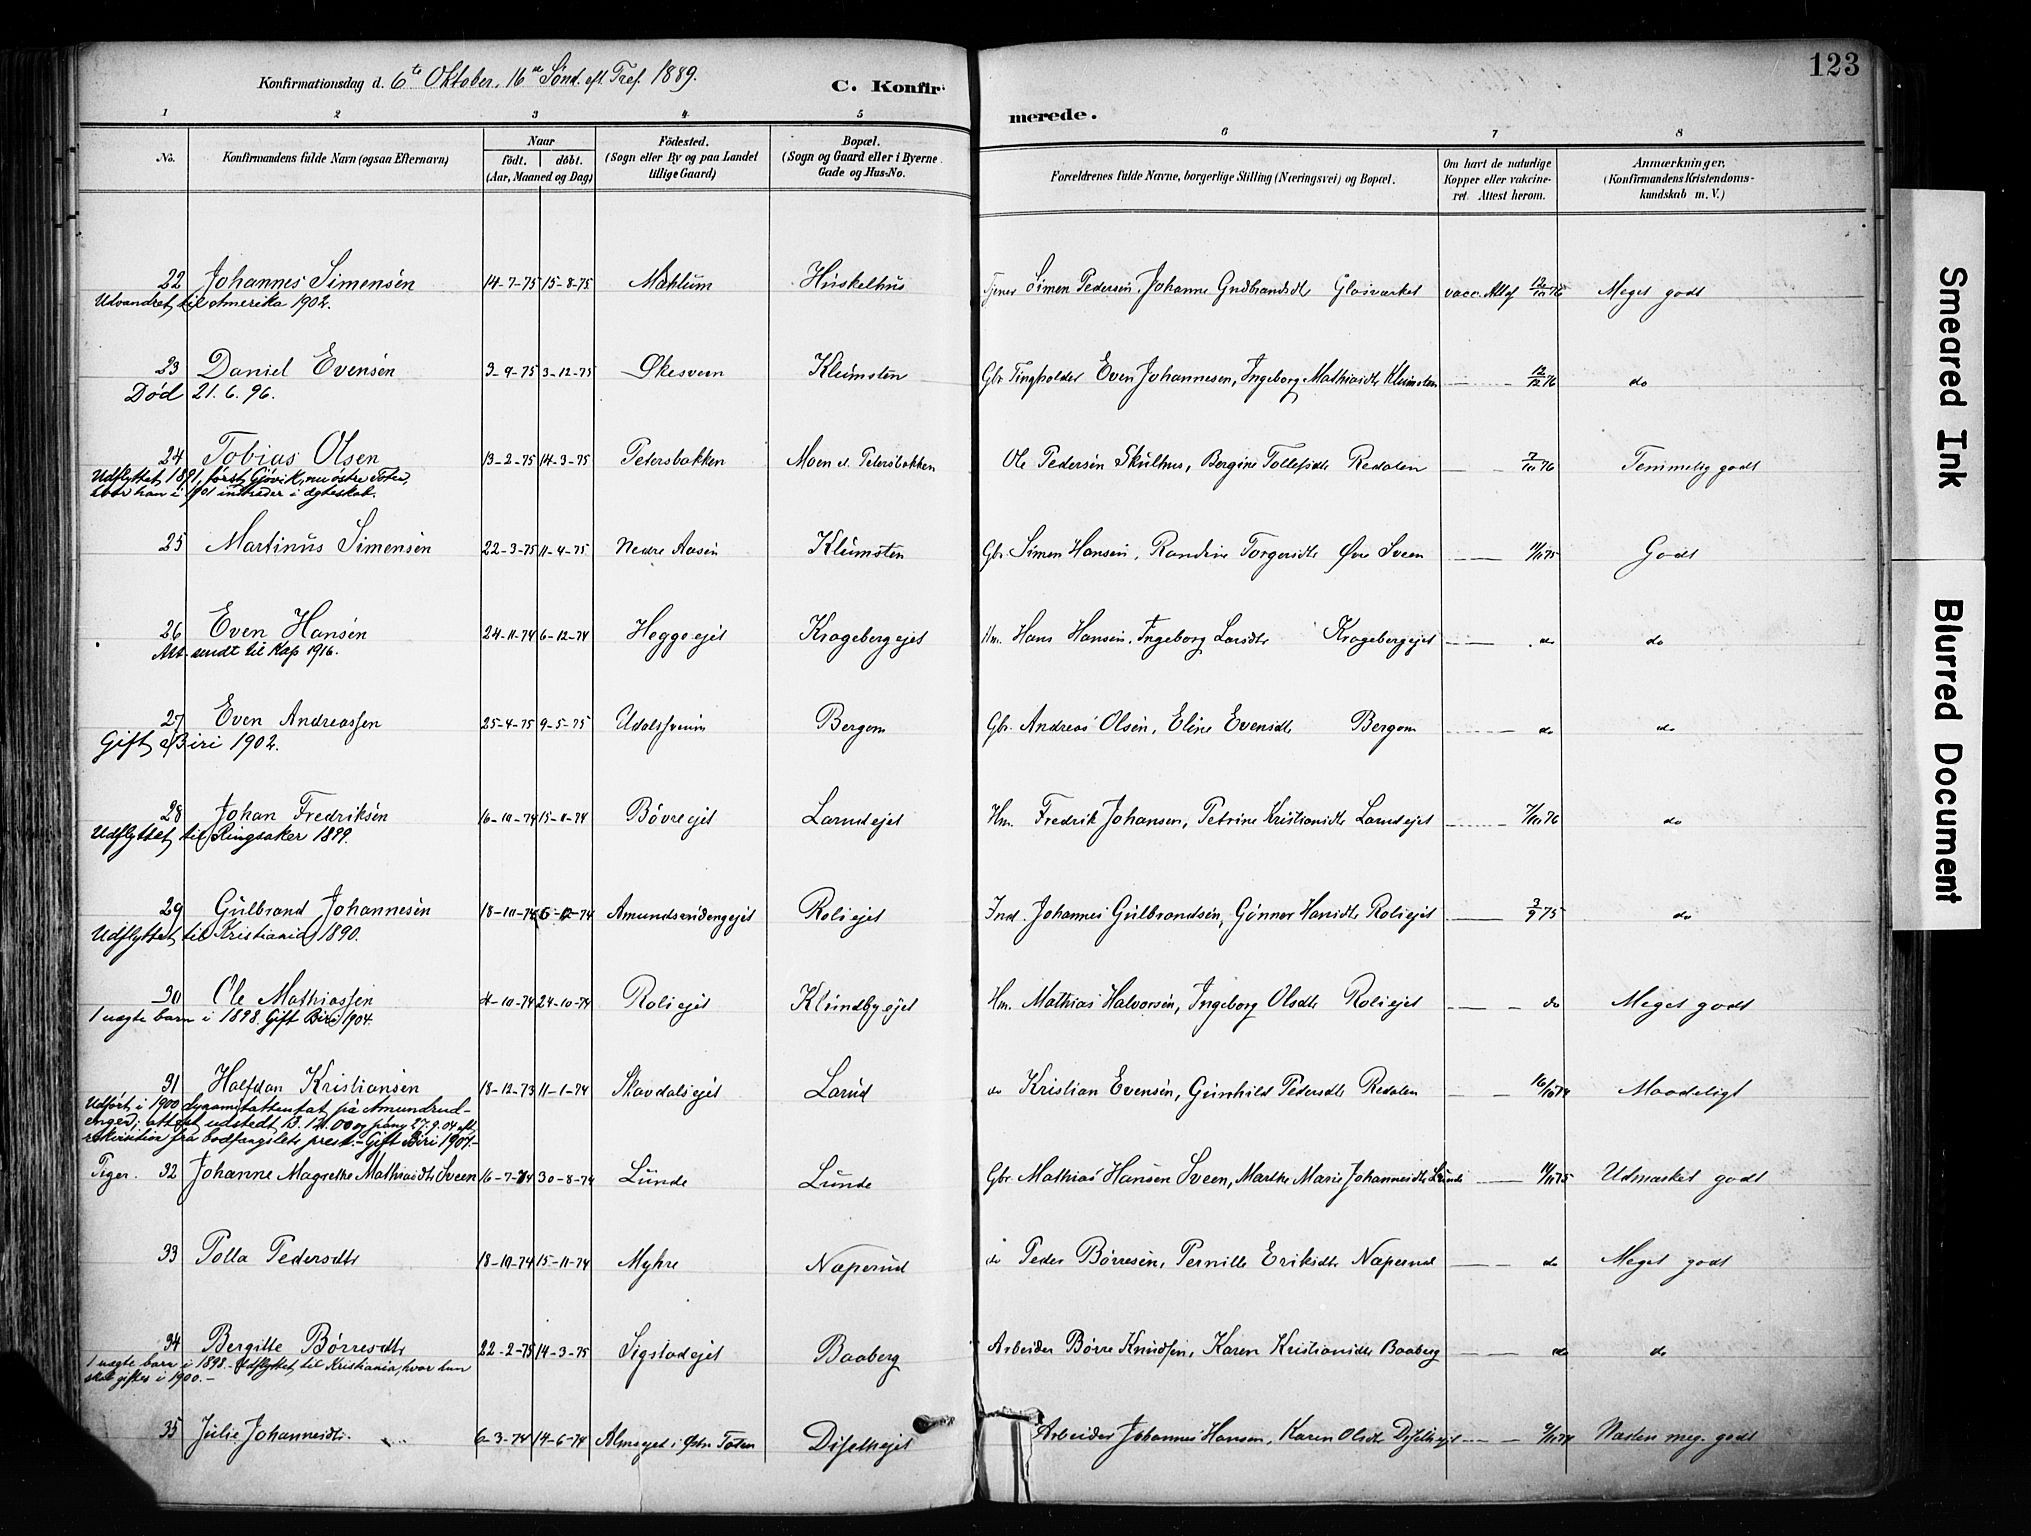 123
Konfirmationsdag d. 6te Oktober, 16de Sønd. eft. Tref. 1889.
C. Konfir-
merede.
1 2 3 4 5 6 7 8
No.
Konfirmandens fulde Navn (ogsaa Efternavn)
Naar
födt. döbt.
(Aar, Maaned og Dag)
Födested.
(Sogn eller By og paa Landet
tillige Gaard)
Bopæl.
(Sogn og Gaard eller i Byerne
Gade og Hus-No.
Forældrenes fulde Navne, borgerlige Stilling (Næringsvei) og Bopæl.
Om havt de naturlige
Kopper eller vakcine-
ret. Attest herom.
Anmærkninger,
(Konfirmandens Kristendoms-
kundskab m. V.)
22 Johannes Simensen 14-7-75 15-8-75 Mæhlum Huskelhus Tjener Simen Pedersen, Johanne Gudbrandsdt Glasværket vacc. Att af 12/10 76 Meget godt
Udvandret til Amerika 1902.
23 Daniel Evensen 3-9-75 3-12-75 Økesveen Klumsten Gbr. Tingholder Even Johannesen, Ingeborg Mathiasdt Klumsten 12/12 76 do
Død 21.6.96.
24 Tobias Olsen 13-2-75 14-3-75 Petersbakken Moen v. Petersbakken Ole Pedersen Skulhus, Bergine Tollefsdt Redalen 7/10 76 Temmelig godt
Udflyttet 1891, først Gjøvik, nu østre Toten,
hvor han i 1901 indtræder i ægteskab.
25 Martinus Simensen 22-3-75 11-4-75 Nedre Aasen Klumsten Gbr. Simen Hansen, Randine Torgersdt Øvre Sveen 11/11 75 Godt
26 Even Hansen 24-11-74 6-12-74 Heggeejet Krageberg ejet Hm. Hans Hansen, Ingeborg Larsdt Kragebergejet do do
Att. sendt til Kap 1916.
27 Even Andreassen 25-4-75 9-5-75 Udalssveen Bergom Gbr. Andreas Olsen, Eline Evensdt Bergom do do
Gift Biri 1902.
28 Johan Fredriksen 16-10-74 15-11-74 Bøvreejet Larudejet Hm. Fredrik Johansen, Petrine Kristiansdt Larudejet 7/10 76 do
Udflyttet til Ringsaker 1899.
29 Gulbrand Johannesen 18-10-74 6-12-74 Amundsrudengejet Roliejet Ind. Johannes Gulbrandsen, Gunnor Hansdt Roliejet 3/9 75 do
Udflyttet til Kristiania 1890.
30 Ole Mathiassen 4-10-74 24-10-74 Roliejet Klundbyejet Hm. Mathias Halvorsen, Ingeborg Olsdt Roliejet do Meget godt
1 uægte barn i 1898. Gift Biri 1904.
31 Halfdan Kristiansen 18-12-73 11-1-74 Skavdalsejet Larud do Kristian Evensen, Gunhild Pedersdt Redalen 16/10 74 Maadeligt
Udført i 1900 dynamitattentat på Amundrud-
enger; attest udstedt 13.12.00 og påny 27.9.04 eft.
rekvisition fra bodfængslets prest. - Gift Biri 1907.-
Piger. 32 Johanne Magrethe Mathiasdt Sveen 16-7-74 30-8-74 Lunde Lunde Gbr. Mathias Hansen Sveen, Marthe Marie Johannesdt Lunde 11/11 75 Udmærket godt
33 Polla Pedersdt 18-10-74 15-11-74 Myhre Næperud do Peder Børresen, Pernille Eriksdt Næperud do Meget godt
34 Bergitte Børresdt 22-2-75 14-3-75 Sigstadejet Baaberg Arbeider Børre Knudsen, Karen Kristiansdt Baaberg do do
1 uægte barn i 1898. Udflyttet til Kristiania, hvor hun
skal giftes i 1900.-
35 Julie Johannesdt. 6-3-74 14-6-74 Almsejet i Østre Toten Disethejet Arbeider Johannes Hansen, Karen Olsdt Disethejet Næsten meg. godt
Smeared Ink
Blurred Document